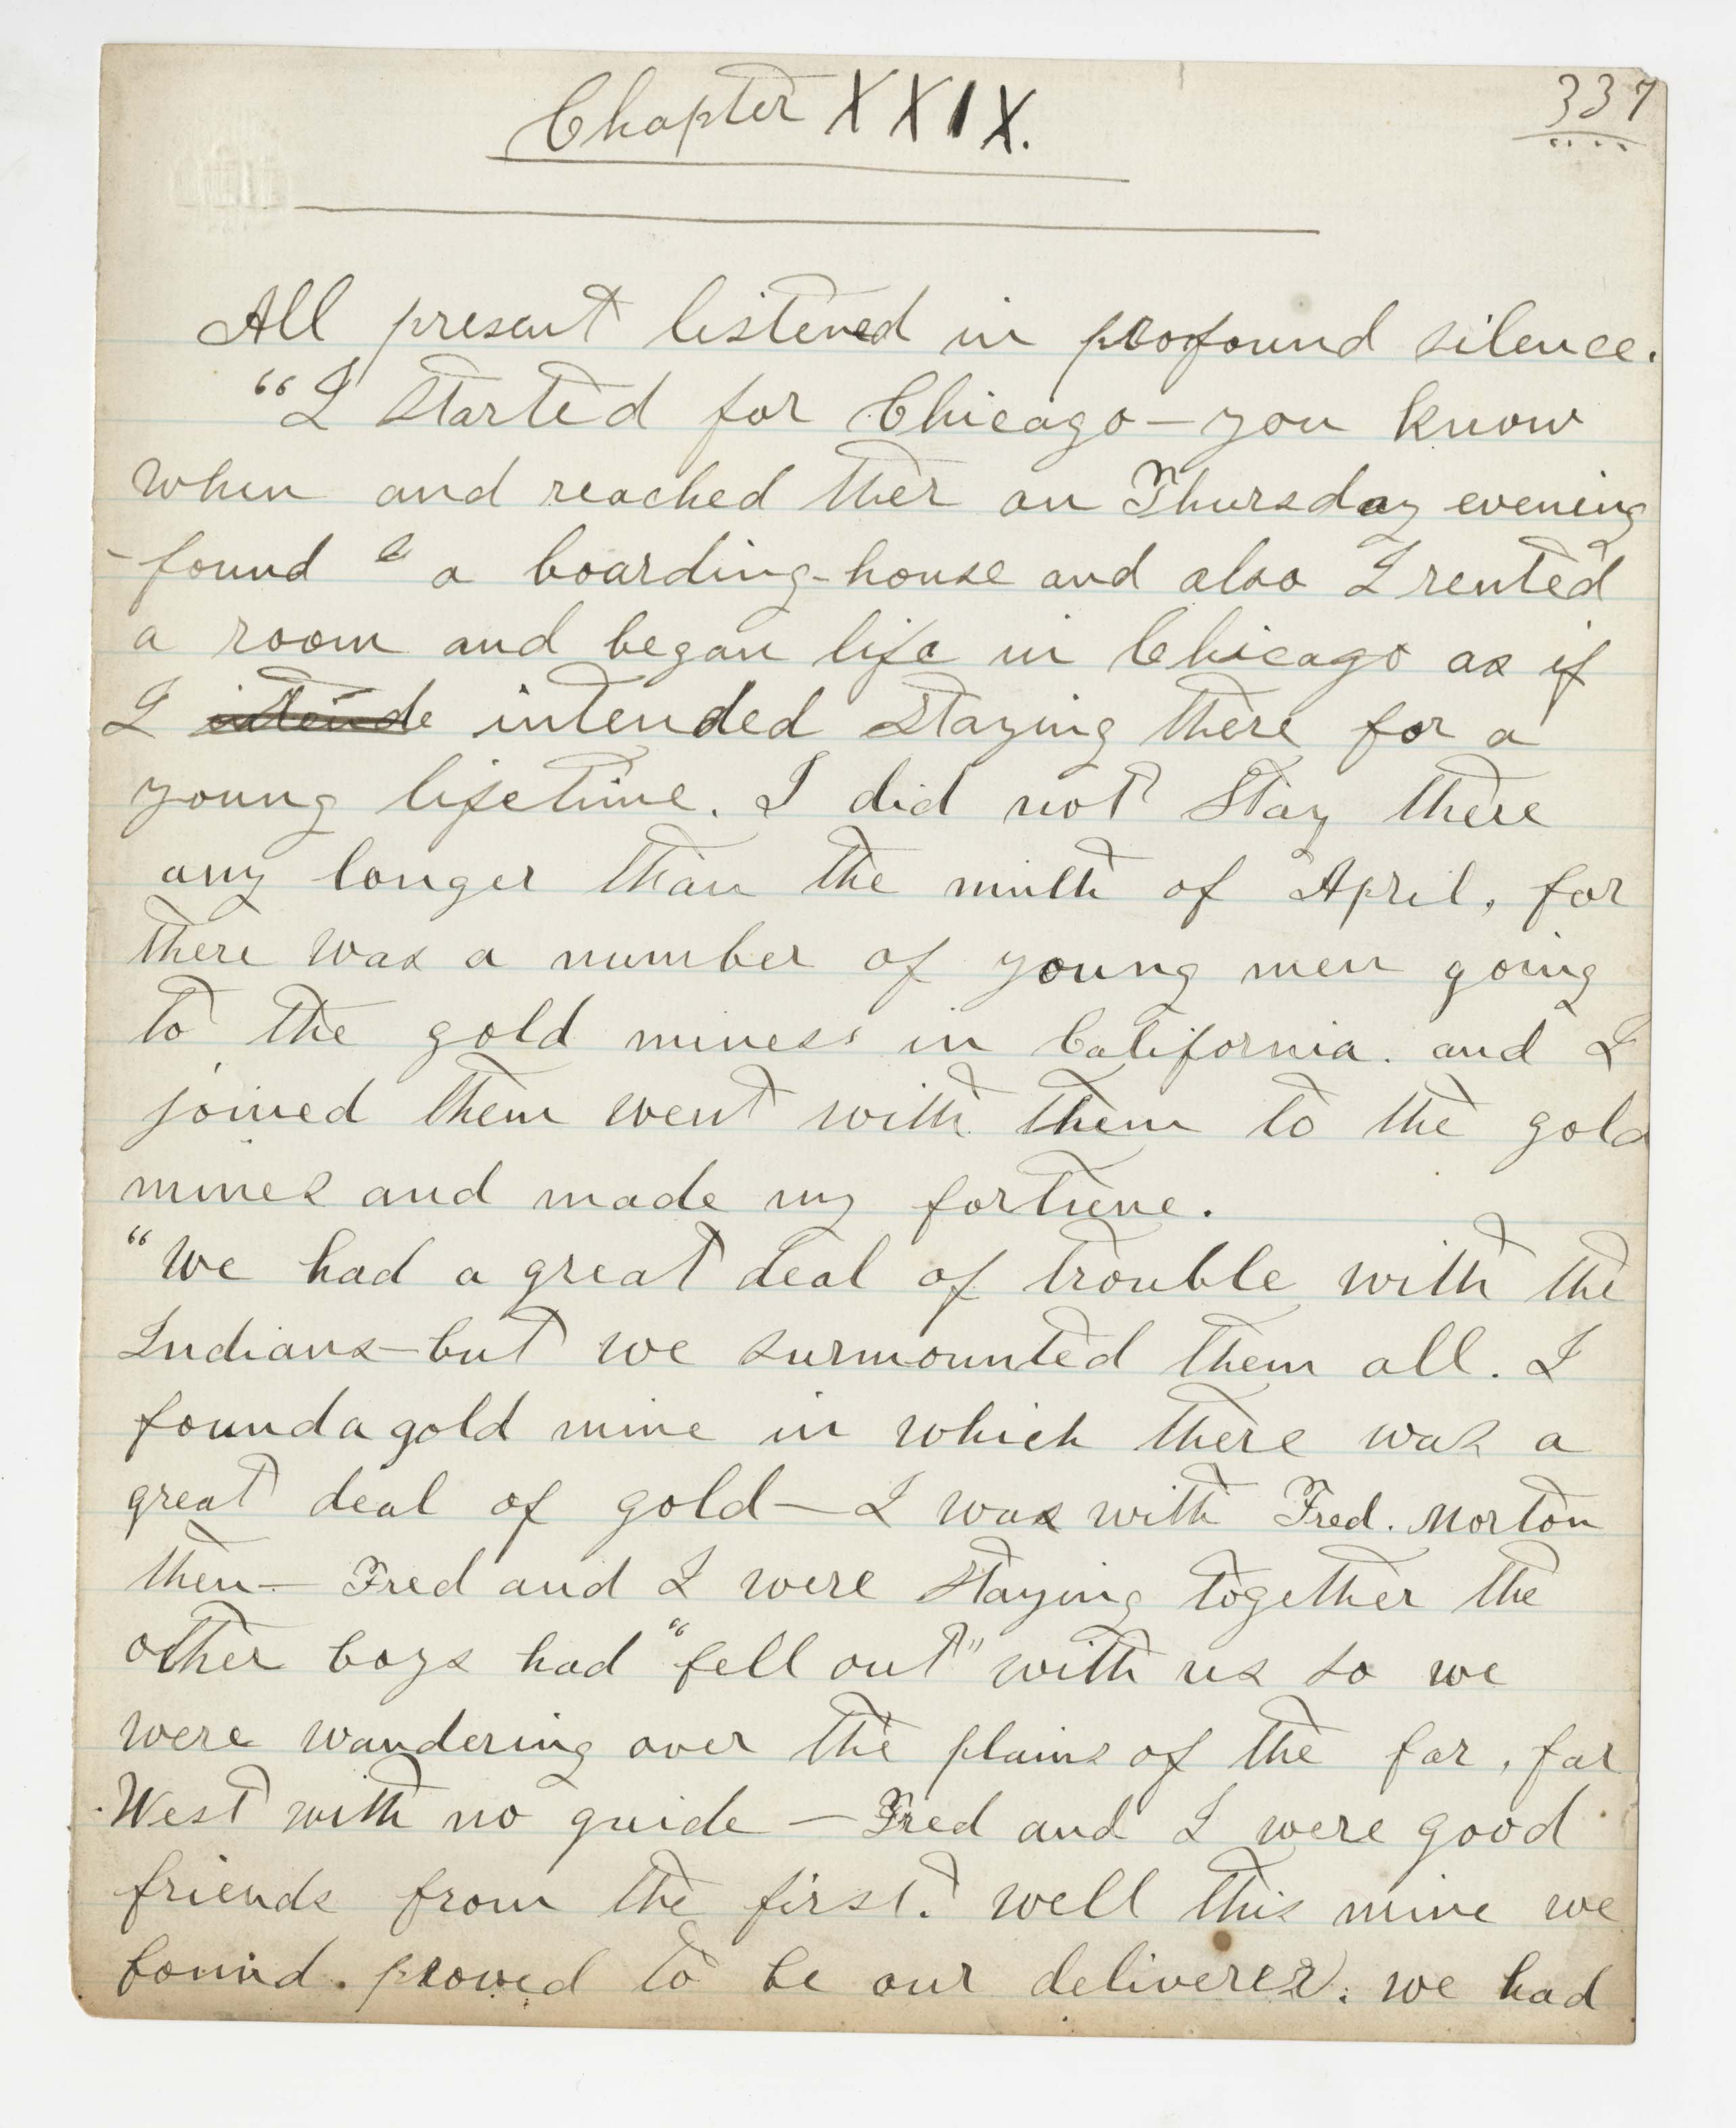 337
Chapter XXIX.
All present listened in profound silence.
"I started for Chicago—you know
when and reached ther on Thursday evening
-found a a boarding-house and also I rented
a room and began life in Chicago as if
I intende intended staying there for a
young lifetime. I did not stay there
any longer than the ninth of April, for
there was a number of young men going
to the gold miness in California. and I
joined them went with them to the gold
mines and made my fortune.
"We had a great deal of trouble with the
Indians—but we surmounted them all. I
found a gold mine in which there was a
great deal of gold—I was with Fred. Morton
then—Fred and I were staying together the
other boys had "fell out" with us so we
were wandering over the plains of the far, far
West with no guide—Fred and I were good
friends from the first. well this mine we
found. proved to be our deliverer. we had